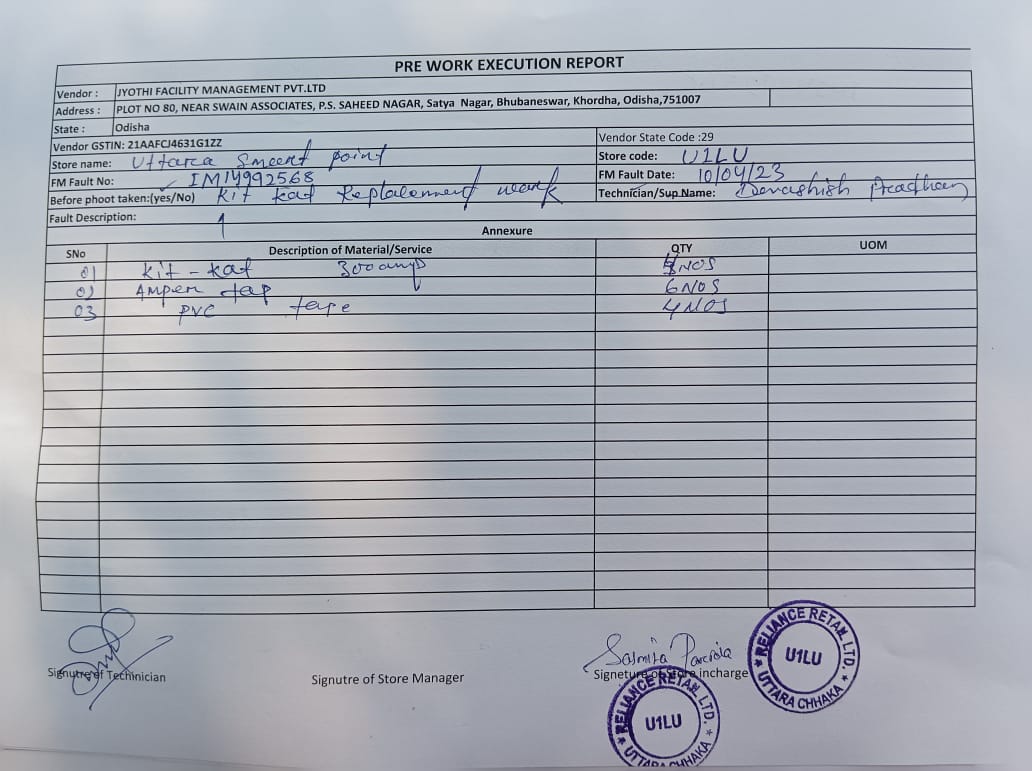 PRE WORK EXECUTION REPORT
Vendor : JYOTHI FACILITY MANAGEMENT PVT.LTD
Address : PLOT NO 80, NEAR SWAIN ASSOCIATES, P.S. SAHEED NAGAR, Satya Nagar, Bhubaneswar, Khordha, Odisha,751007
State : Odisha
Vendor GSTIN: 21AAFCJ4631G1ZZ Vendor State Code :29
Store name: Uttara Smeert point Store code: U1LU
FM Fault No: IM14992568 FM Fault Date: 10/04/23
Before phoot taken:(yes/No) Kit kat Replalement work Technician/Sup.Name: Devashish Pradhan
Fault Description:
Annexure
SNo Description of Material/Service QTY UOM
01 Kit - kat 300 amp NOS
02 Amper tap 6 NOS
03 PVC tape 4 NOS
Signutre of Technician
Signutre of Store Manager
Sasmita Parida
Signeture of Store incharge
RELIANCE RETAIL LTD.
U1LU
UTTARA CHHAKA
RELIANCE RETAIL LTD.
U1LU
UTTARA CHHAKA